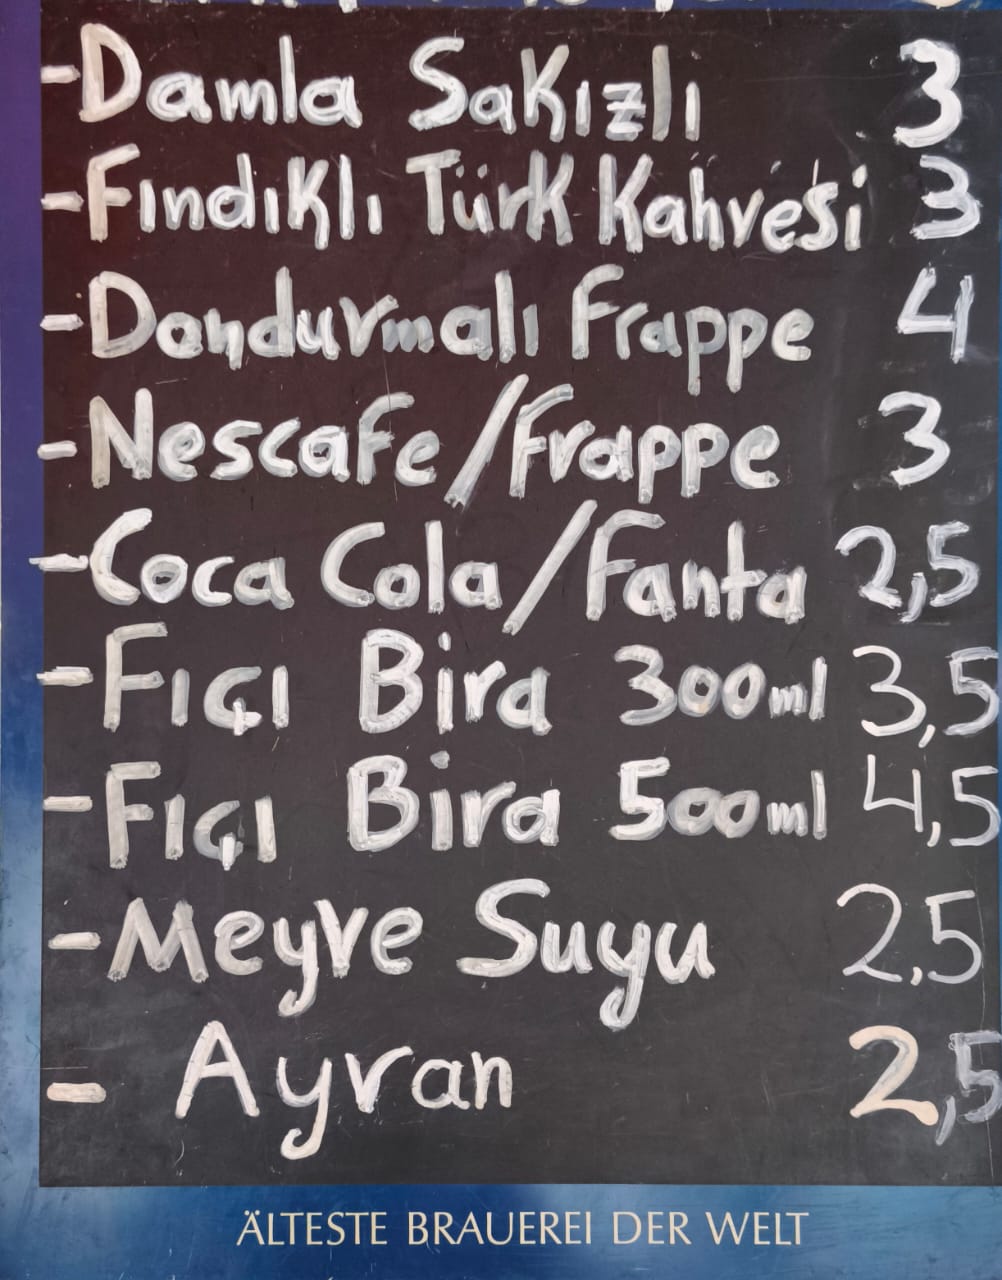 -Damla Sakızlı 3
-Fındıklı Türk Kahvesi 3
-Donduvmalı Frappe 4
-Nescafe/Frappe 3
-Coca Cola/Fanta 2,5
-Fıçı Bira 300ml 3,5
-Fıçı Bira 500ml 4,5
-Meyve Suyu 2,5
- Ayran 2,5
ÄLTESTE BRAUEREI DER WELT